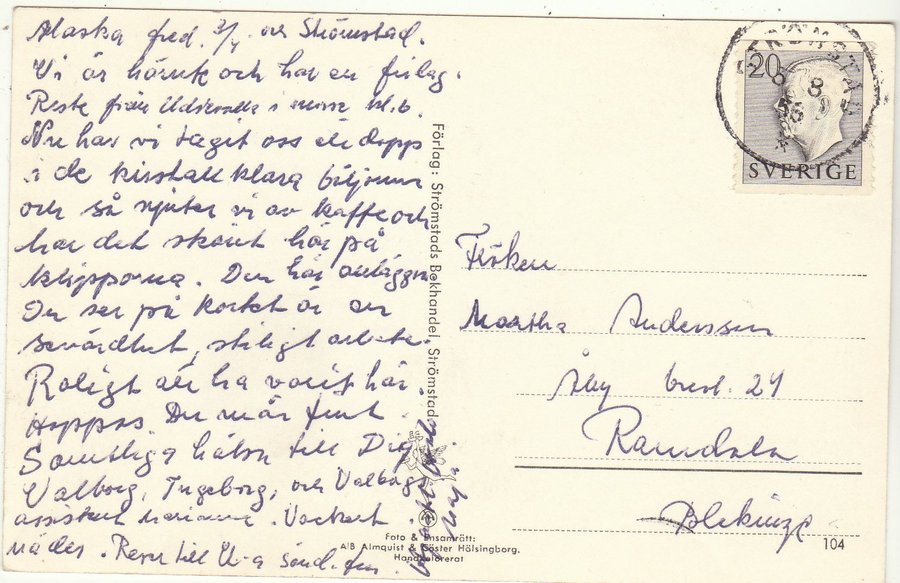 Alaska fred. 3/7 ov Strömstad.
Vi är här ute och har en fridag.
Reste från Uddevalla i morse kl. 6.
Nu har vi tagit oss ett dopp
i de kristallklara böljorna
och så njuter vi av kaffe och
har det skönt här på
klipporna. Den här anläggn.
Du ser på kortet är en
sevärdhet, stiligt arbete.
Roligt att ha varit här.
Hoppas Du mår fint.
Samtliga hälsn till Dig
Valborg, Ingeborg, och Valborgs
assistent Marianne. Vackert
väder. Reser till U-a sönd. fm.
Maja
Förlag: Strömstads Bokhandel, Strömstad
20
SVERIGE
STRÖMSTAD
Fröken
Martha Andersson
Åby brevl. 24
Ramdala
Blekinge
Foto & Ensamrätt:
A/B Almquist & Cöster Hälsingborg.
Handkolorerat
104